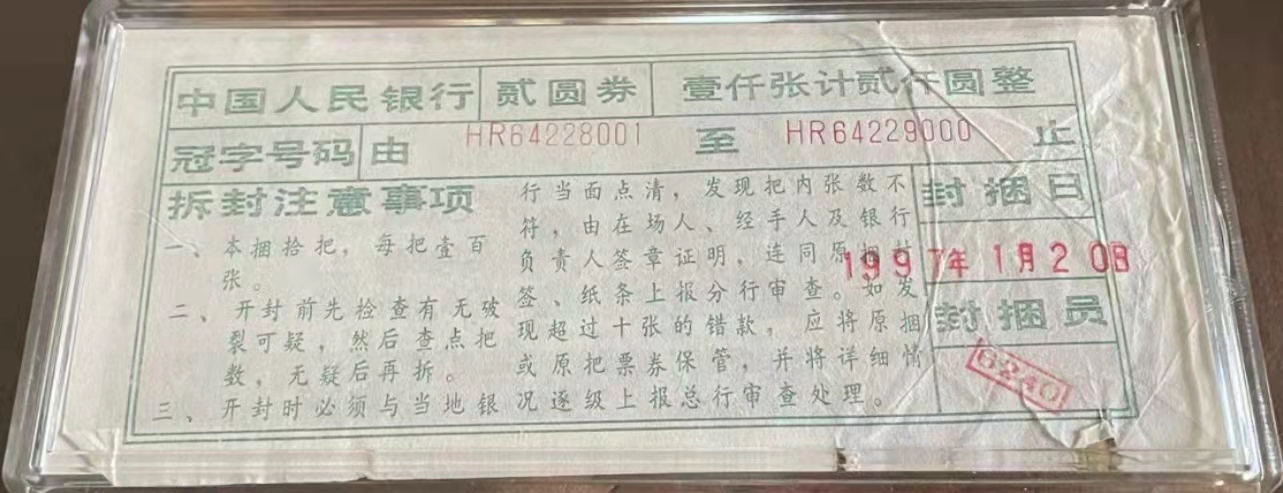 中国人民银行 贰圆券 壹仟张计贰仟圆整
冠字号码 由 HR64228001 至 HR64229000 止
拆封注意事项
一、本捆拾把，每把壹百
张。
二、开封前先检查有无破
裂可疑，然后查点把
数，无疑后再拆。
三、开封时必须与当地银
行当面点清，发现把内张数不
符，由在场人、经手人及银行
负责人签章证明，连同原捆封
签、纸条上报分行审查。如发
现超过十张的错款，应将原捆
或原把票券保管，并将详细情
况逐级上报总行审查处理。
封捆日
1997年1月20日
封捆员
6240